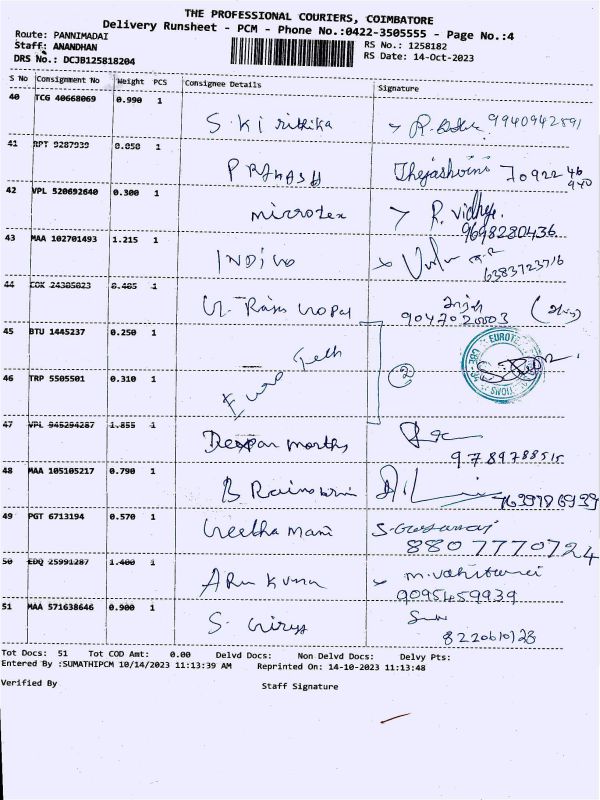 THE PROFESSIONAL COURIERS, COIMBATORE
Delivery Runsheet - PCM - Phone No.:0422-3505555 - Page No.:4
Route: PANNIMADAI
Staff: ANANDHAN
RS No.: 1258182
DRS No.: DCJB125818204
RS Date: 14-Oct-2023
S No Consignment No Weight PCS Consignee Details Signature
40 TCG 40668069 0.990 1
S. Kirithika 9940942891
41 RPT 9287939 0.050 1
PRAKASH Thejashvini 70922 46
940
42 VPL 520692640 0.300 1
microtex R. Vidhya
9698280436
43 MAA 102701493 1.215 1
INDIGO
6383723716
44 COK 24305023 0.405 1
G. Raja Gopal
9047020003
45 BTU 1445237 0.250 1
Euro Tech 2 EUROTE
46 TRP 5505501 0.310 1
47 VPL 945294287 1.855 1
9789788515
48 MAA 105105217 0.790 1
B
7639786939
49 PGT 6713194 0.570 1
Geetha mani
8807770724
50 EDQ 25991287 1.400 1
ARUN Kumar
9095459939
51 MAA 571638646 0.900 1
S.
8220610128
Tot Docs: 51 Tot COD Amt: 0.00 Delvd Docs: Non Delvd Docs: Delvy Pts:
Entered By :SUMATHIPCM 10/14/2023 11:13:39 AM Reprinted On: 14-10-2023 11:13:48
Verified By Staff Signature